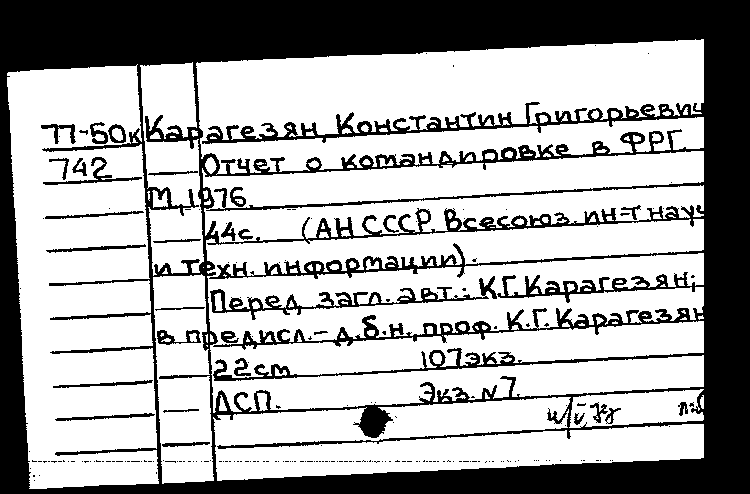 77-50к Карагезян, Константин Григорьевич
742 Отчет о командировке в ФРГ.
М., 1976.
44с. (АН СССР. Всесоюз. ин-т науч
и техн. информации).
Перед загл. авт.: К.Г. Карагезян;
в предисл.- д.б.н., проф. К.Г. Карагезян
22см. 107экз.
ДСП. Экз. №7.